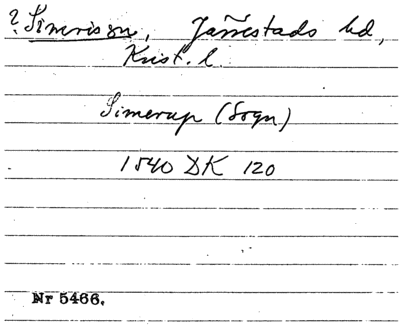 ? Simrisön, Järrestads hd,
Krist. l.
Simerup (Sogn)
1540 DK 120
Nr 5466.